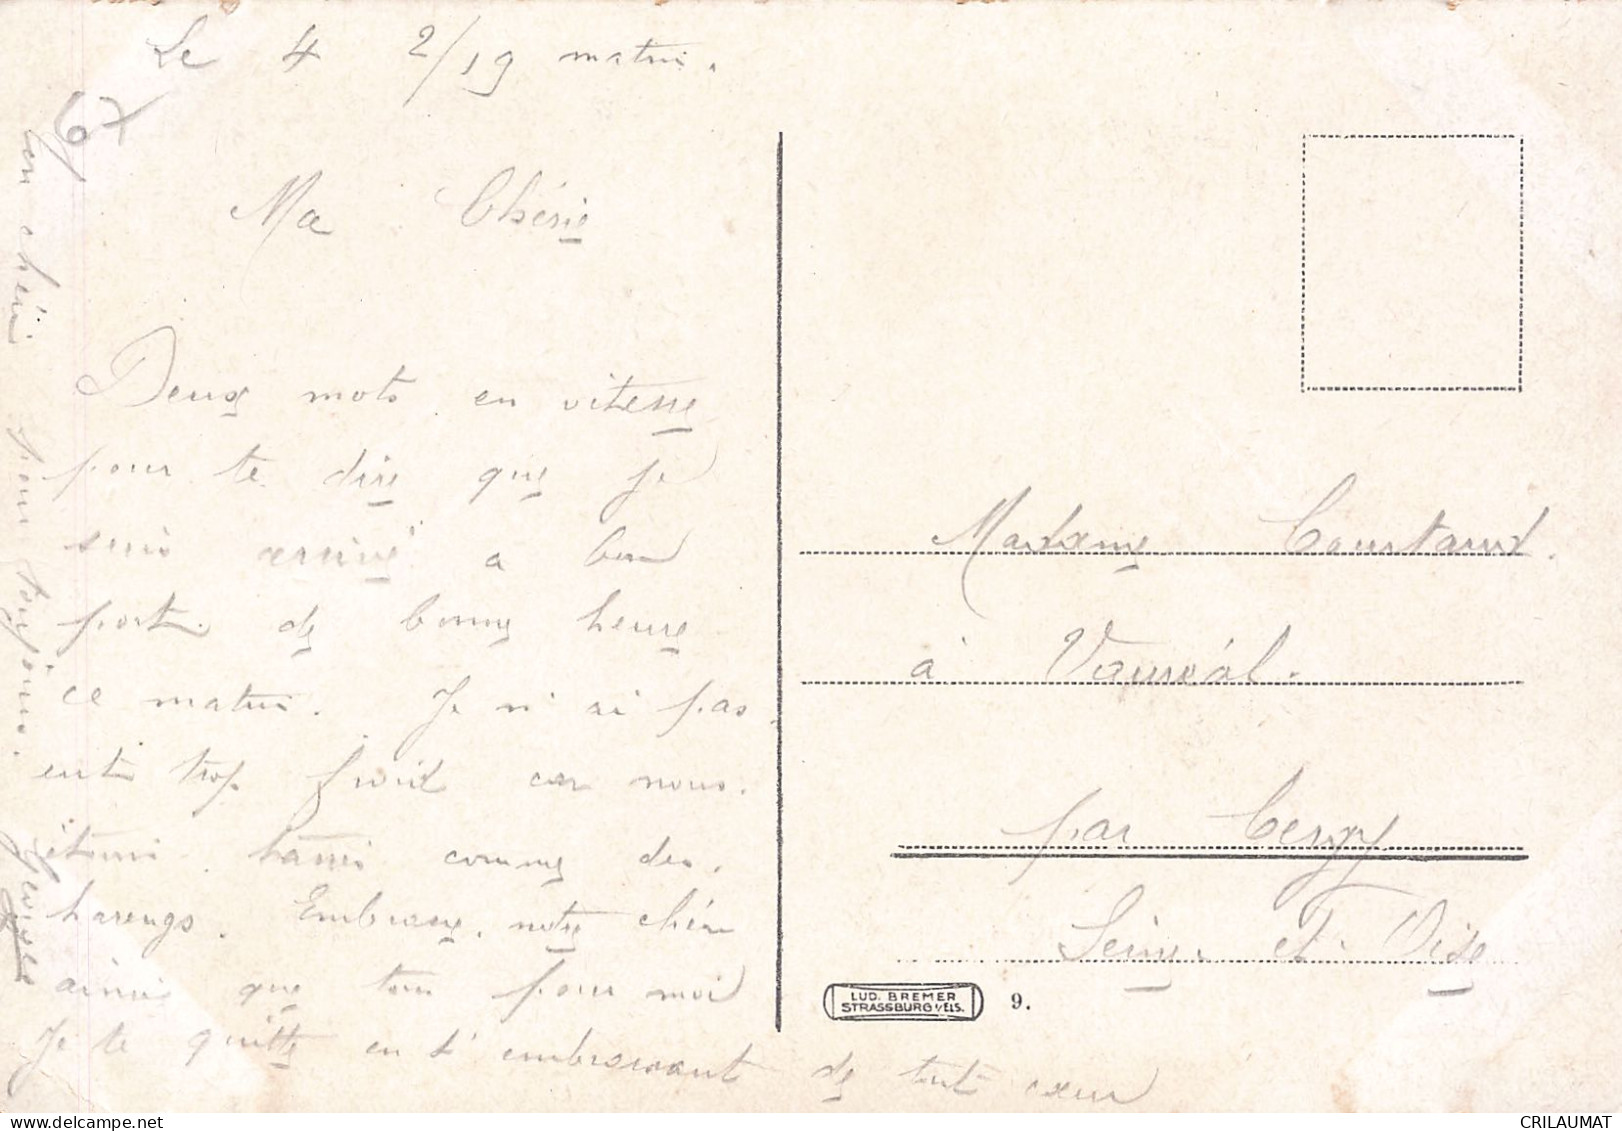 Le 4 2/19 matin.
67
Ma Chérie
Deux mots en vitesse
pour te dire que je
suis arrivé a bon
port de bonne heure
ce matin. Je n'ai pas
eut trop froid car nous
étions comme des
harengs. Embrasse notre chéri
ainsi que tous pour moi
Je te quitte en t'embrassant de tout cœur
Ton chéri pour toujours.
Madame Courtaud.
à Vauréal.
par Cergy
Seine et Oise
LUD. BREMER
STRASSBURG i/ELS.
9.
CRILAUMAT